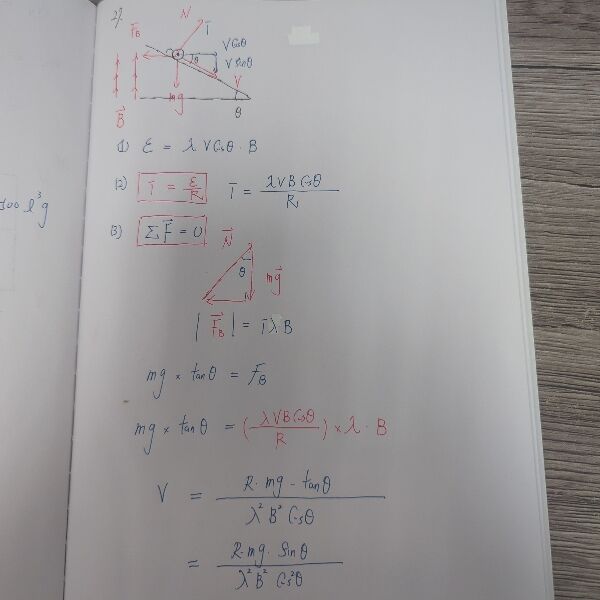 27.
N
I
F_B
V cosθ
V sinθ
θ
V
mg
B⃗
θ
(1) ε = λ V cosθ · B
(2) I = ε/R   I = λVB cosθ / R
(3) ΣF⃗ = 0   N⃗
θ   mg⃗
|F⃗_B| = IλB
mg × tanθ = F_B
mg × tanθ = (λVB cosθ / R) × λ · B
V = R · mg · tanθ / λ² B² cosθ
= R · mg · sinθ / λ² B² cos²θ